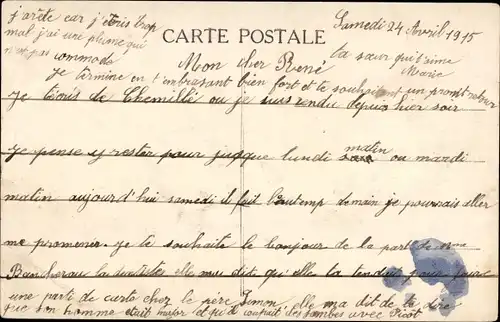 Samedi 24 Avril 1915
CARTE POSTALE
Mon cher René
Je t'écris de Chemillé ou je suis rendu depuis hier soir
Je pense y rester pour jusque lundi matin ou mardi
matin aujourd'hui samedi il fait beautemp demain je pourrais aller
me promener. je te souhaite le bonjour de la part de Mme
elle mas dit qu'elle la tendait pour faire
une partie de carte chez le père Simon, elle ma dit de te dire
que son homme était major et qu'il coupait des jambes avec Picot
j'arète car j'écris trop
mal j'ai une plume qui
n'est pas commode
je termine en t'embrasant bien fort et te souhaitant un promt retour
ta sœur qui t'aime
Marie